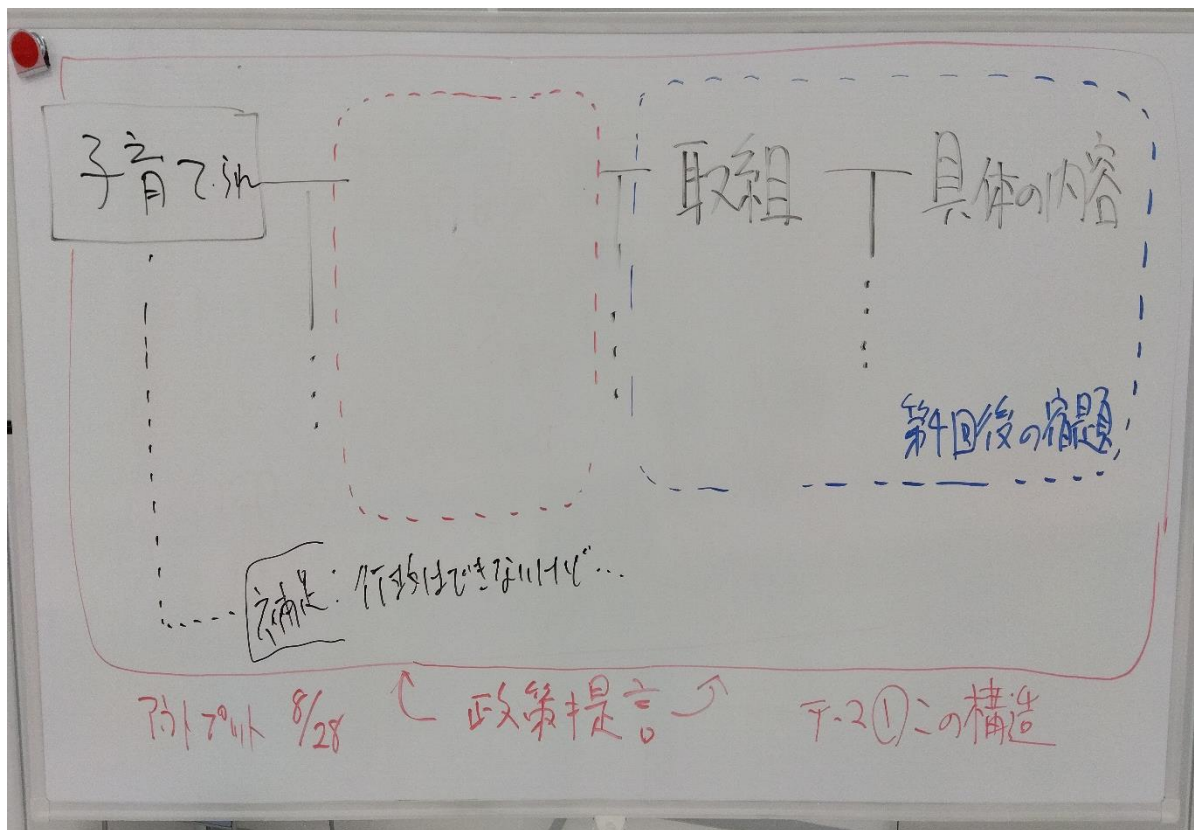 子育て
取組
具体の内容
第4回後の宿題
補足:行政はできないけど…
アウトプット 8/28
政策提言
テーマ①この構造